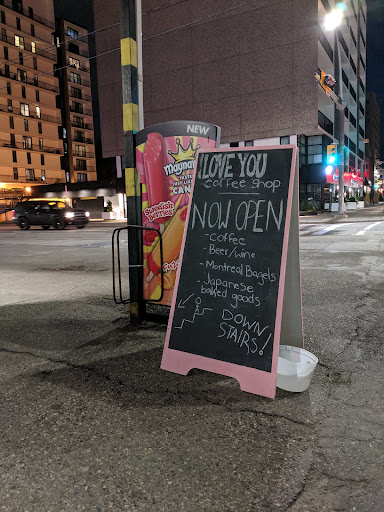 NEW
Maynards
CANDY
Swedish
Berries
I LOVE YOU
coffee shop
NOW OPEN
- Coffee
- Beer/wine
- Montreal Bagels
- Japanese
baked goods
DOWN
STAIRS!